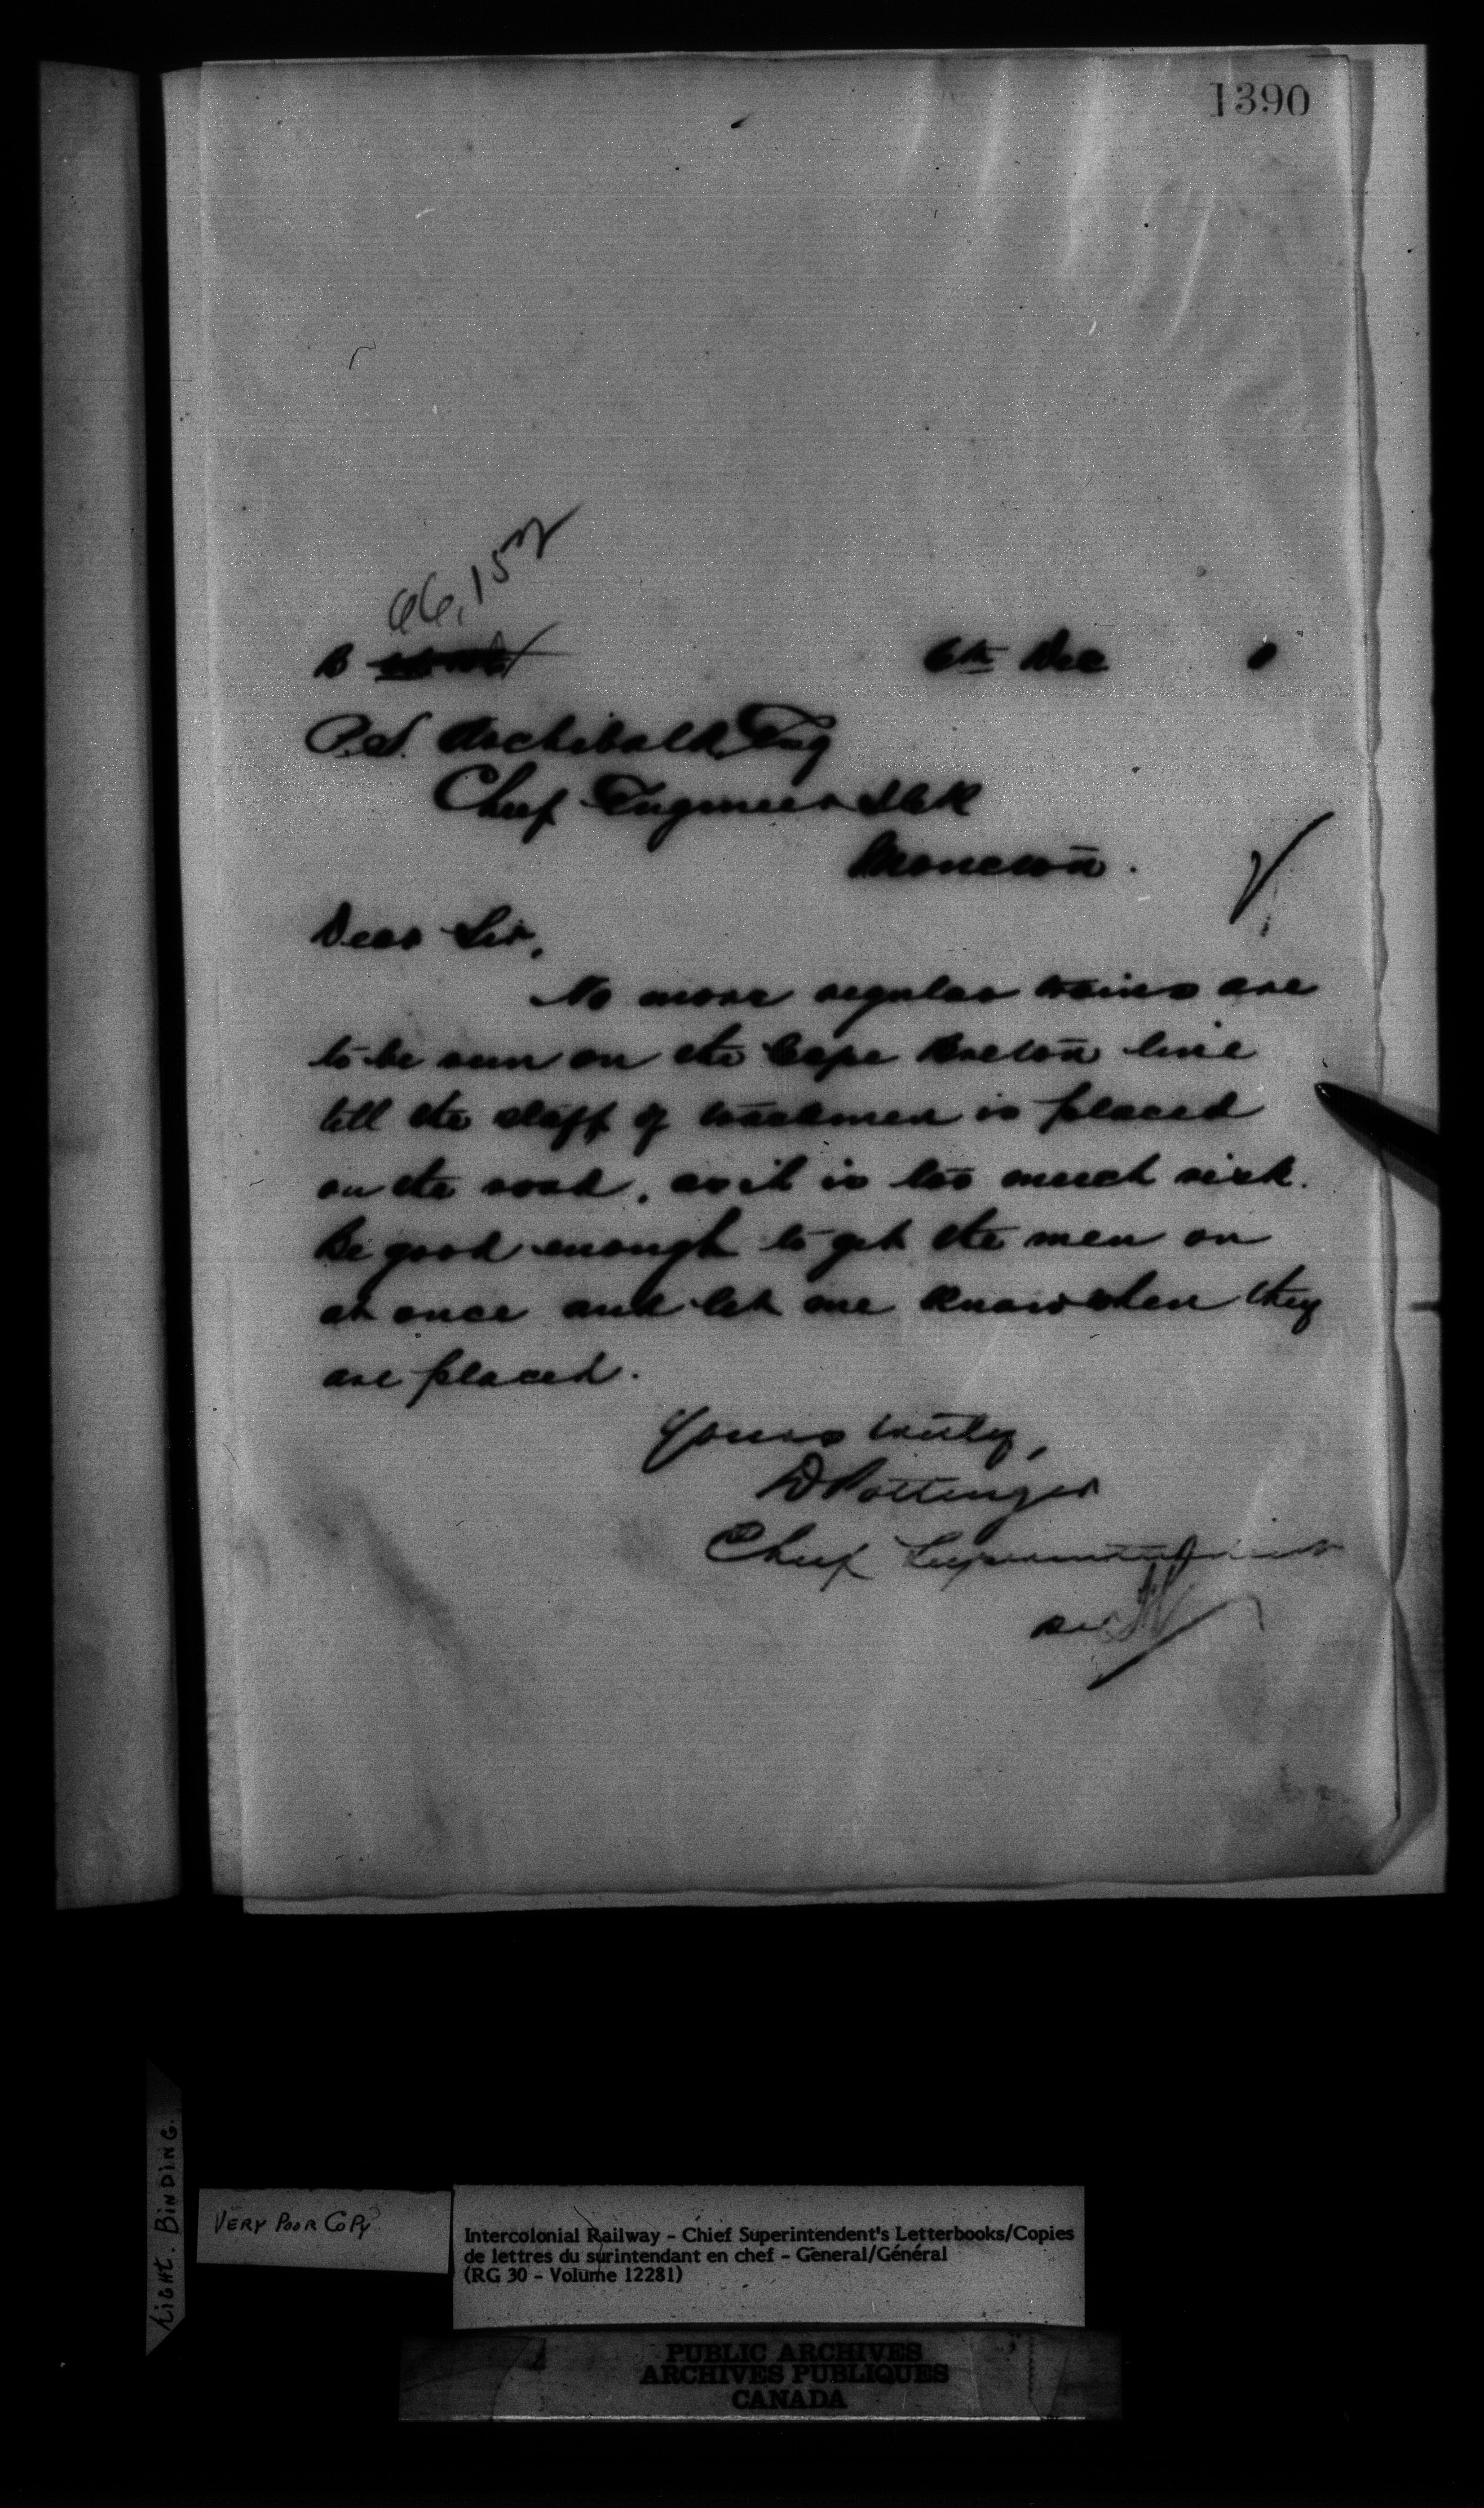 1390
66,152
B
6th Dec 0
P.S. Archibald, Esq
Chief Engineer I.C.R
Moncton.
Dear Sir,
No more regular trains are
to be run on the Cape Breton line
till the staff of trackmen is placed
on the road, as it is too much risk.
Be good enough to get the men on
at once and let me know when they
are placed.
Yours truly,
D Pottinger
Chief Superintendent
TIGHT. BINDING.
VERY POOR COPY
Intercolonial Railway - Chief Superintendent's Letterbooks/Copies
de lettres du surintendant en chef - General/Général
(RG 30 - Volume 12281)
PUBLIC ARCHIVES
ARCHIVES PUBLIQUES
CANADA